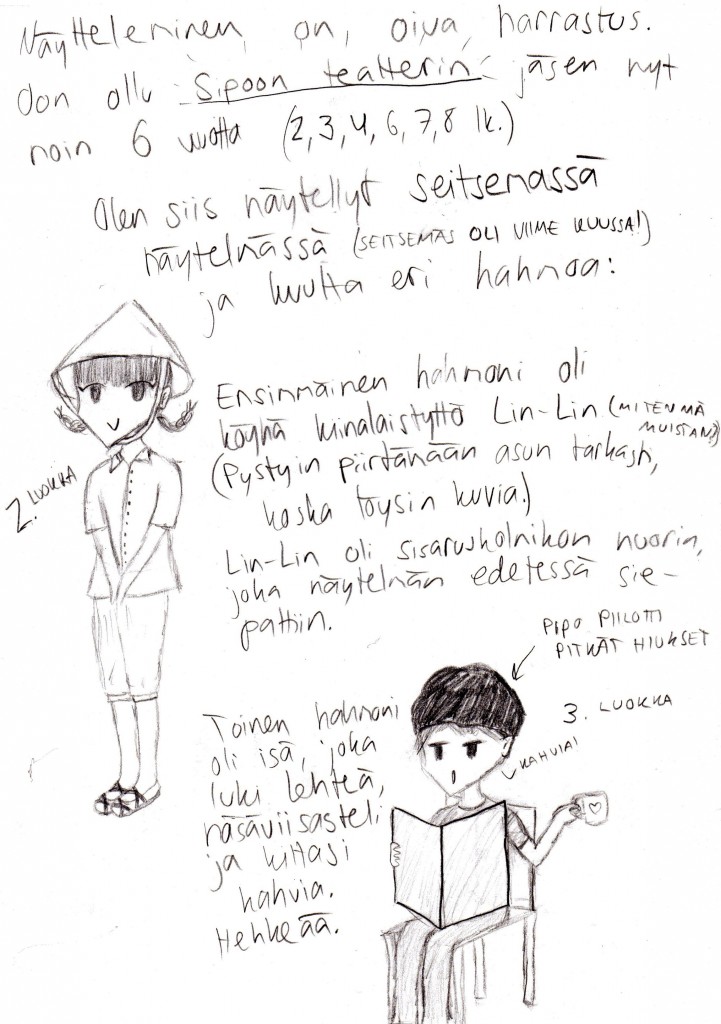 Näytteleminen, on, oiva, harrastus.
Oon ollu Sipoon teatterin jäsen nyt
noin 6 vuotta (2,3,4,6,7,8 lk.)
Olen siis näytellyt seitsemässä
näytelmässä (SEITSEMÄS OLI VIIME KUUSSA!)
ja kuutta eri hahmoa:
Ensimmäinen hahmoni oli
köyhä kiinalaistyttö Lin-Lin (MITEN MÄ
MUISTAN?)
(Pystyin piirtämään asun tarkasti,
koska löysin kuvia.)
Lin-Lin oli sisaruskolmikon nuorin,
joka näytelmän edetessä sie-
pattiin.
2. LUOKKA
PIPO PIILOTTI
PITKÄT HIUKSET
3. LUOKKA
KAHVIA!
Toinen hahmoni
oli isä, joka
luki lehteä,
näsäviisasteli
ja kittasi
kahvia.
Hehkeää.